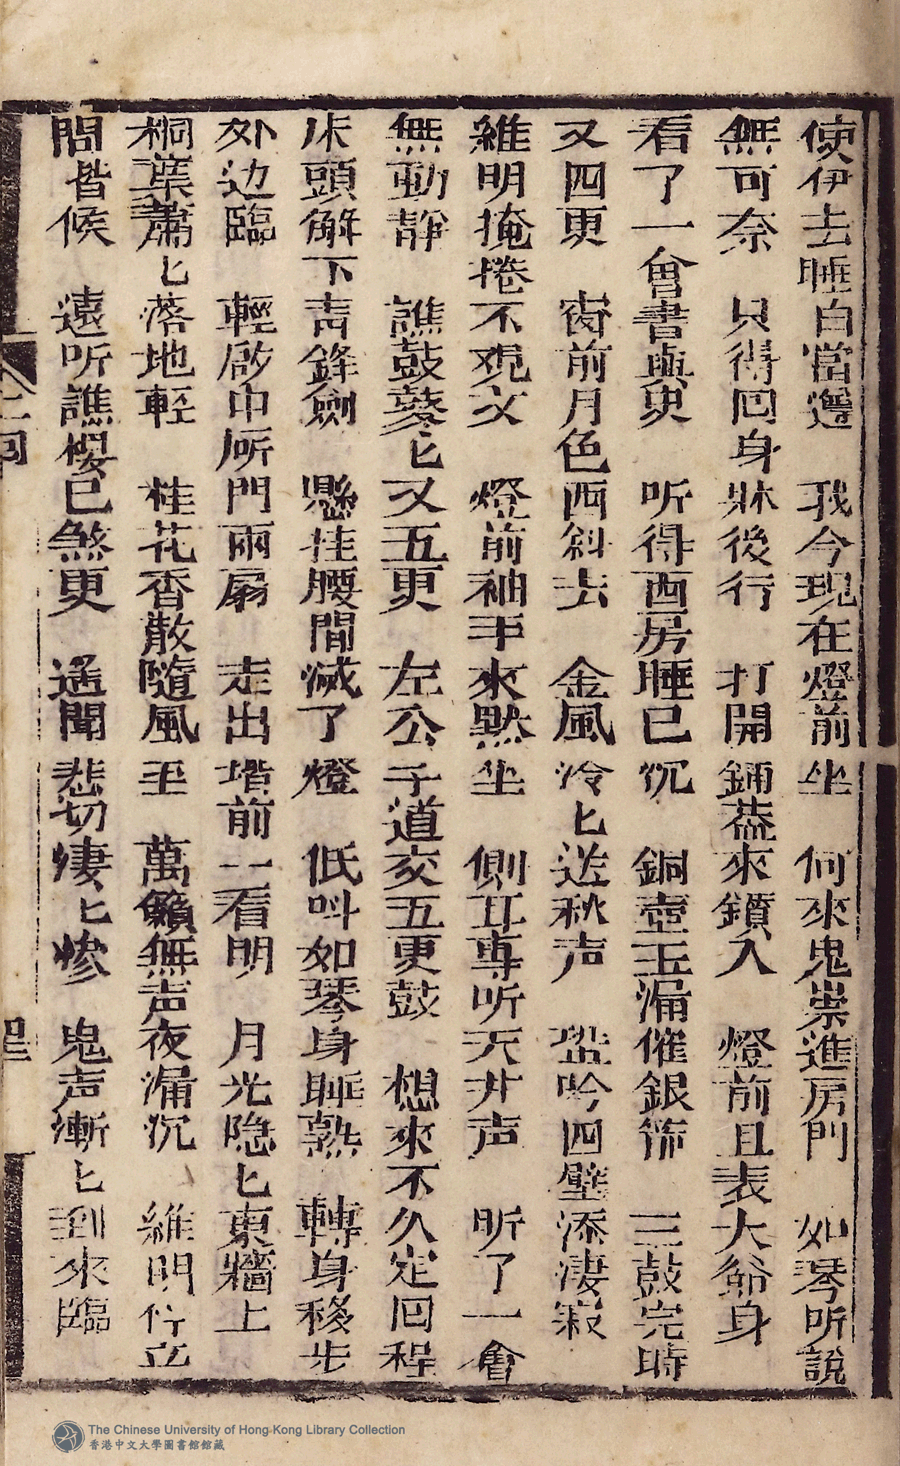 使伊去睡自當邊 我今現在燈前坐 何來鬼祟進房門 如琴听說
無可奈 只得回身牀後行 打開鋪蓋來鑽入 燈前且表大爺身
看了一會書與史 听得西房睡已沉 銅壺玉漏催銀箭 三鼓完時
又四更 窗前月色西斜去 金風冷匕送秋声 蛩吟四壁添淒寂
維明掩捲不观文 燈前袖手來黙坐 側耳專听天井声 听了一會
無動靜 譙鼓鼕匕又五更 左公子道交五更鼓 想來不久定回程
床頭解下青鋒劍 懸挂腰間滅了燈 低呌如琴身睡熟 轉身移步
外边臨 輕啟中所門兩扇 走出堦前一看明 月光隐匕東牆上
桐葉蕭匕落地輕 桂花香散隨風至 萬籟無声夜漏沉 維明佇立
間皆候 遠听譙樓已煞更 遥聞悲切凄匕惨 鬼声漸匕到來臨
二回
The Chinese University of Hong Kong Library Collection
香港中文大學圖書館館藏